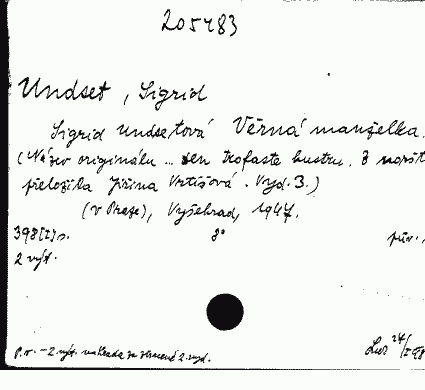 205483
Undset, Sigrid
Sigrid Undsetová Věrná manželka.
(Název originálu ... den trofaste hustru. Z noršt
přeložila Jiřina Vrtišová. Vyd. 3.)
(V Praze), Vyšehrad, 1947.
398[I] s. 8° přív.
2 výt.
P. v. - 2. výt. náhrada za ztracené 2. vyd.